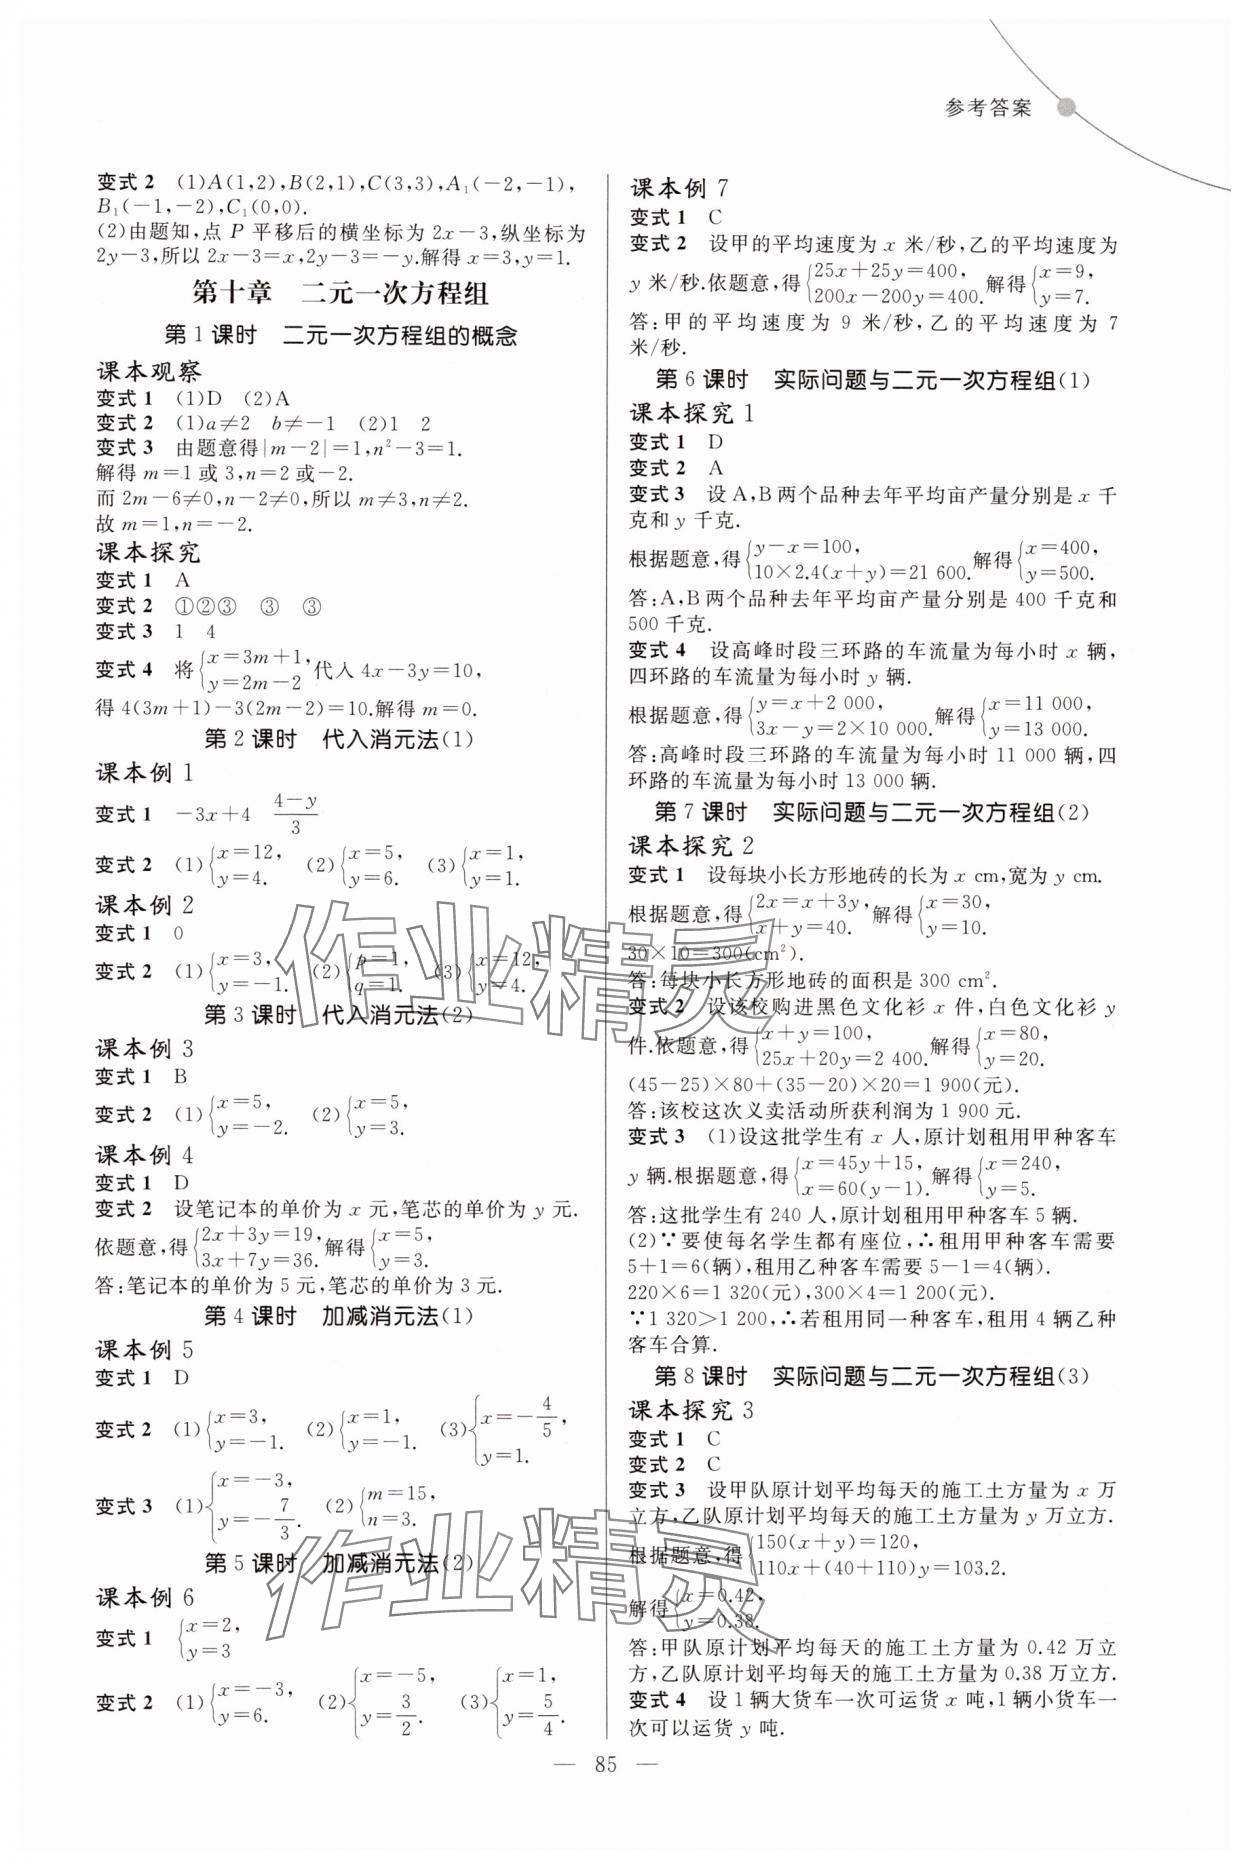 参考答案
变式 2 (1)A(1,2),B(2,1),C(3,3),A₁(－2,－1),
B₁(－1,－2),C₁(0,0).
(2)由题知,点 P 平移后的横坐标为 2x－3,纵坐标为
2y－3,所以 2x－3＝x,2y－3＝－y.解得 x＝3,y＝1.
第十章 二元一次方程组
第 1 课时 二元一次方程组的概念
课本观察
变式 1 (1)D (2)A
变式 2 (1)a≠2 b≠－1 (2)1 2
变式 3 由题意得|m－2|＝1,n²－3＝1.
解得 m＝1 或 3,n＝2 或－2.
而 2m－6≠0,n－2≠0,所以 m≠3,n≠2.
故 m＝1,n＝－2.
课本探究
变式 1 A
变式 2 ①②③ ③ ③
变式 3 1 4
变式 4 将{x＝3m＋1, y＝2m－2 代入 4x－3y＝10,
得 4(3m＋1)－3(2m－2)＝10.解得 m＝0.
第 2 课时 代入消元法(1)
课本例 1
变式 1 －3x＋4 (4－y)/3
变式 2 (1){x＝12, y＝4. (2){x＝5, y＝6. (3){x＝1, y＝1.
课本例 2
变式 1 0
变式 2 (1){x＝3, y＝－1. (2){p＝1, q＝1. (3){x＝12, y＝4.
第 3 课时 代入消元法(2)
课本例 3
变式 1 B
变式 2 (1){x＝5, y＝－2. (2){x＝5, y＝3.
课本例 4
变式 1 D
变式 2 设笔记本的单价为 x 元,笔芯的单价为 y 元.
依题意,得{2x＋3y＝19, 3x＋7y＝36. 解得{x＝5, y＝3.
答:笔记本的单价为 5 元,笔芯的单价为 3 元.
第 4 课时 加减消元法(1)
课本例 5
变式 1 D
变式 2 (1){x＝3, y＝－1. (2){x＝1, y＝－1. (3){x＝－4/5, y＝1.
变式 3 (1){x＝－3, y＝－7/3. (2){m＝15, n＝3.
第 5 课时 加减消元法(2)
课本例 6
变式 1 {x＝2, y＝3
变式 2 (1){x＝－3, y＝6. (2){x＝－5, y＝3/2. (3){x＝1, y＝5/4.
课本例 7
变式 1 C
变式 2 设甲的平均速度为 x 米/秒,乙的平均速度为
y 米/秒.依题意,得{25x＋25y＝400, 200x－200y＝400. 解得{x＝9, y＝7.
答:甲的平均速度为 9 米/秒,乙的平均速度为 7
米/秒.
第 6 课时 实际问题与二元一次方程组(1)
课本探究 1
变式 1 D
变式 2 A
变式 3 设 A,B 两个品种去年平均亩产量分别是 x 千
克和 y 千克.
根据题意,得{y－x＝100, 10×2.4(x＋y)＝21 600. 解得{x＝400, y＝500.
答:A,B 两个品种去年平均亩产量分别是 400 千克和
500 千克.
变式 4 设高峰时段三环路的车流量为每小时 x 辆,
四环路的车流量为每小时 y 辆.
根据题意,得{y＝x＋2 000, 3x－y＝2×10 000. 解得{x＝11 000, y＝13 000.
答:高峰时段三环路的车流量为每小时 11 000 辆,四
环路的车流量为每小时 13 000 辆.
第 7 课时 实际问题与二元一次方程组(2)
课本探究 2
变式 1 设每块小长方形地砖的长为 x cm,宽为 y cm.
根据题意,得{2x＝x＋3y, x＋y＝40. 解得{x＝30, y＝10.
30×10＝300(cm²)
答:每块小长方形地砖的面积是 300 cm².
变式 2 设该校购进黑色文化衫 x 件,白色文化衫 y
件.依题意,得{x＋y＝100, 25x＋20y＝2 400. 解得{x＝80, y＝20.
(45－25)×80＋(35－20)×20＝1 900(元).
答:该校这次义卖活动所获利润为 1 900 元.
变式 3 (1)设这批学生有 x 人,原计划租用甲种客车
y 辆.根据题意,得{x＝45y＋15, x＝60(y－1). 解得{x＝240, y＝5.
答:这批学生有 240 人,原计划租用甲种客车 5 辆.
(2)∵要使每名学生都有座位,∴租用甲种客车需要
5＋1＝6(辆),租用乙种客车需要 5－1＝4(辆).
220×6＝1 320(元),300×4＝1 200(元).
∵1 320＞1 200,∴若租用同一种客车,租用 4 辆乙种
客车合算.
第 8 课时 实际问题与二元一次方程组(3)
课本探究 3
变式 1 C
变式 2 C
变式 3 设甲队原计划平均每天的施工土方量为 x 万
立方,乙队原计划平均每天的施工土方量为 y 万立方.
根据题意,得{150(x＋y)＝120, 110x＋(40＋110)y＝103.2.
解得{x＝0.42, y＝0.38.
答:甲队原计划平均每天的施工土方量为 0.42 万立
方,乙队原计划平均每天的施工土方量为 0.38 万立方.
变式 4 设 1 辆大货车一次可运货 x 吨,1 辆小货车一
次可以运货 y 吨.
— 85 —
作业精灵
作业精灵